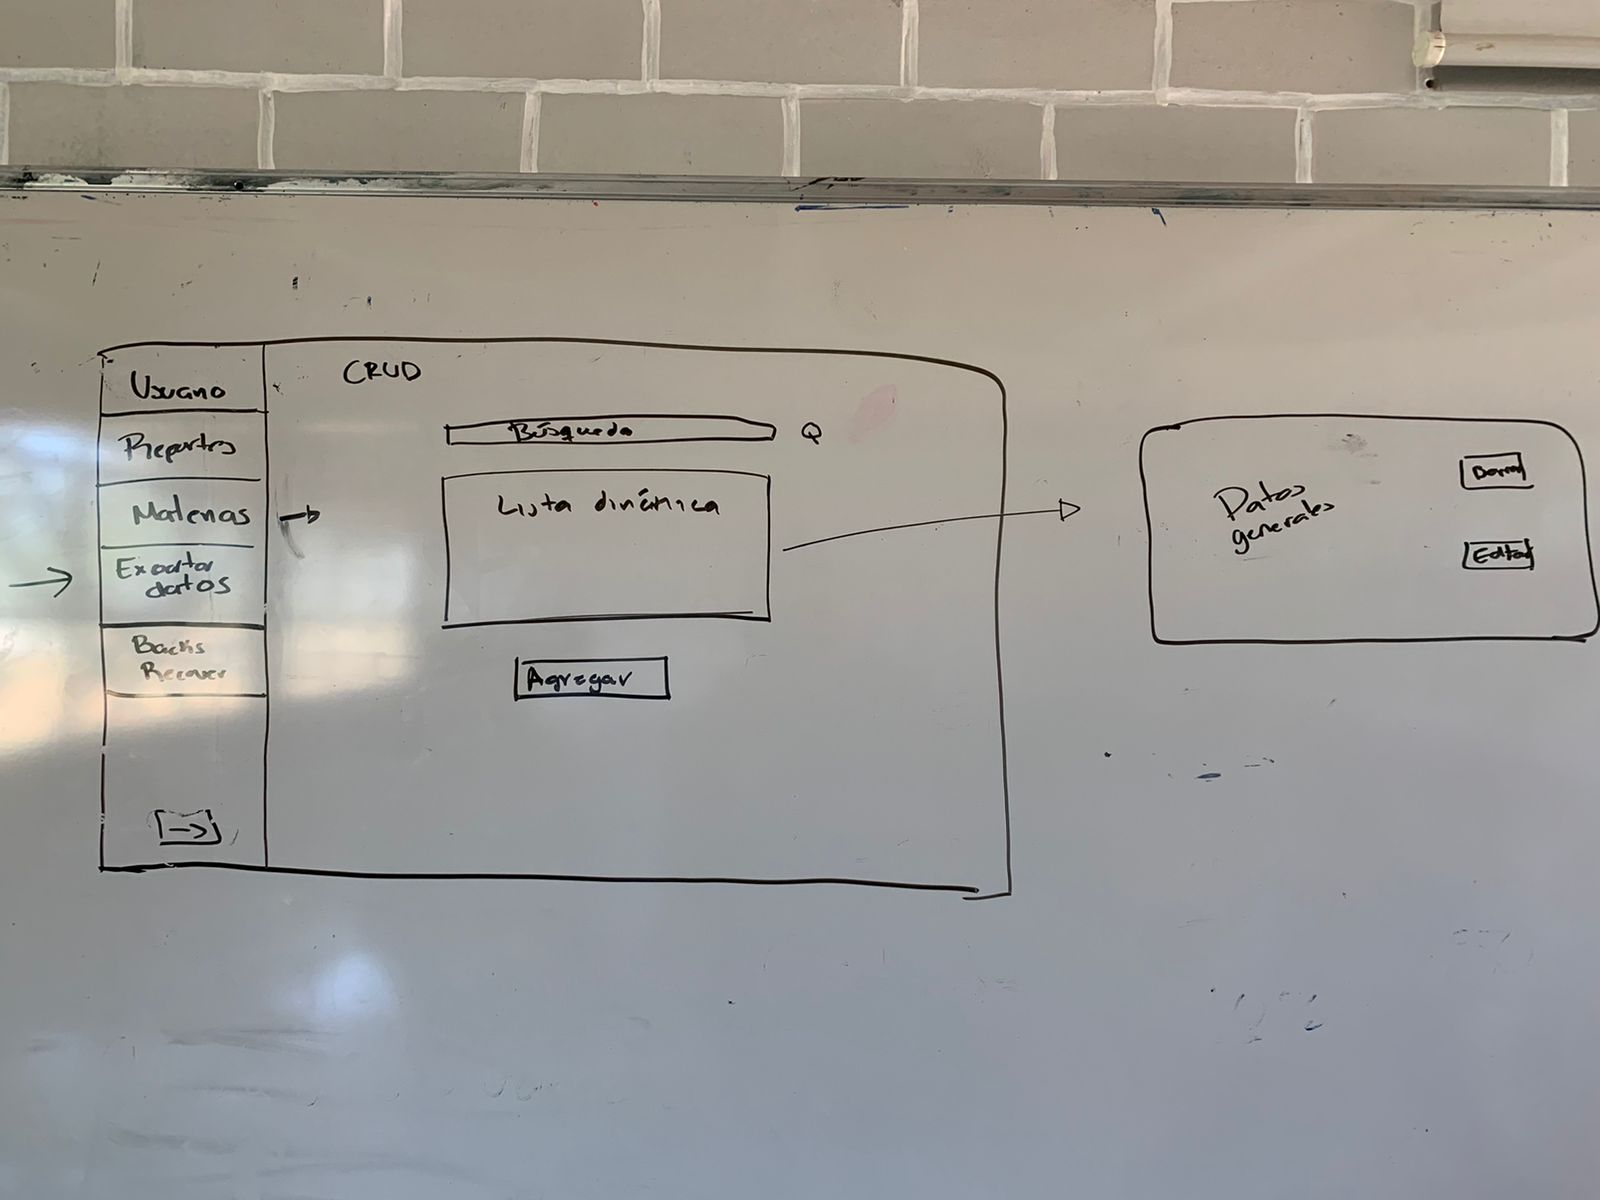 Usuario
Reportes
Materias
Exportar
datos
Recover
CRUD
Búsqueda
Lista dinámica
Agregar
Datos
generales
Editar